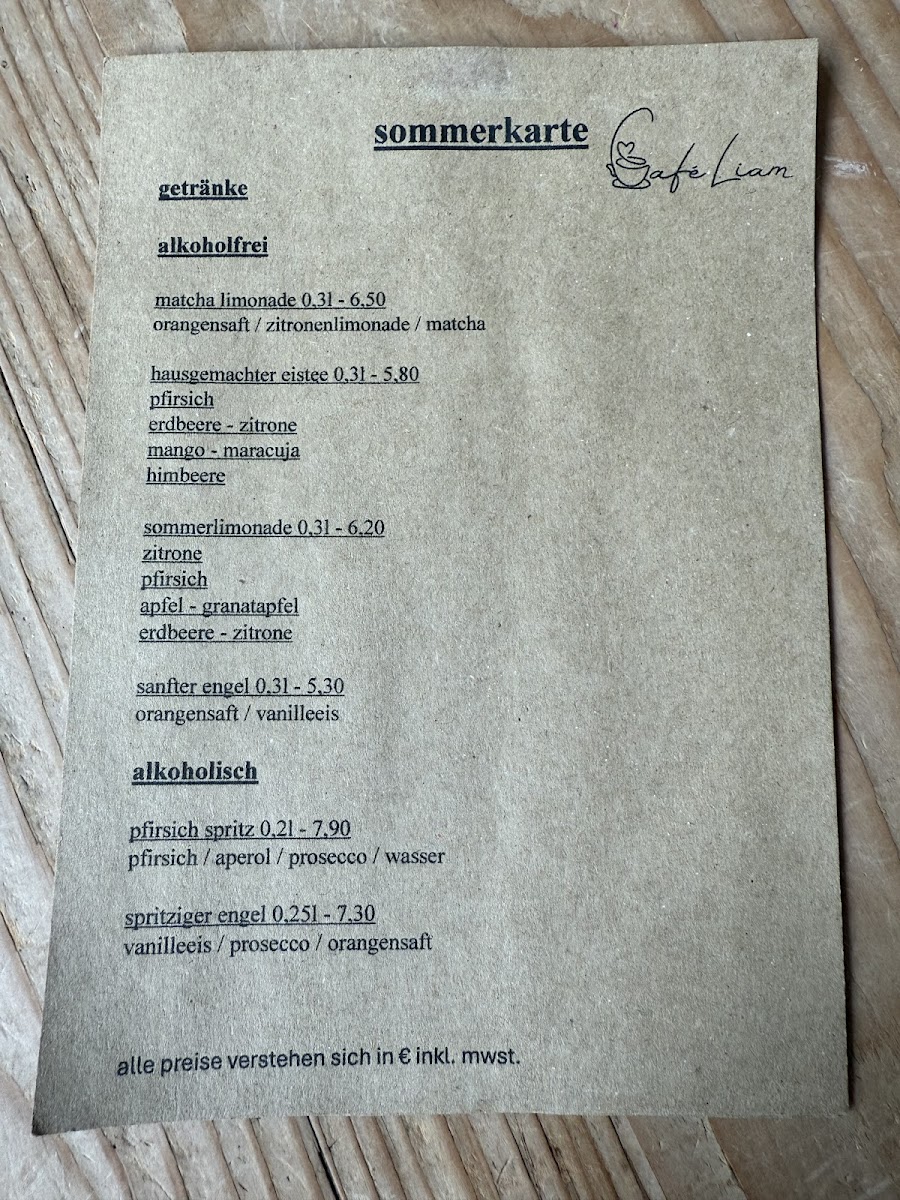 sommerkarte
Café Liam
getränke
alkoholfrei
matcha limonade 0,3l - 6,50
orangensaft / zitronenlimonade / matcha
hausgemachter eistee 0,3l - 5,80
pfirsich
erdbeere - zitrone
mango - maracuja
himbeere
sommerlimonade 0,3l - 6,20
zitrone
pfirsich
apfel - granatapfel
erdbeere - zitrone
sanfter engel 0,3l - 5,30
orangensaft / vanilleeis
alkoholisch
pfirsich spritz 0,2l - 7,90
pfirsich / aperol / prosecco / wasser
spritziger engel 0,25l - 7,30
vanilleeis / prosecco / orangensaft
alle preise verstehen sich in € inkl. mwst.